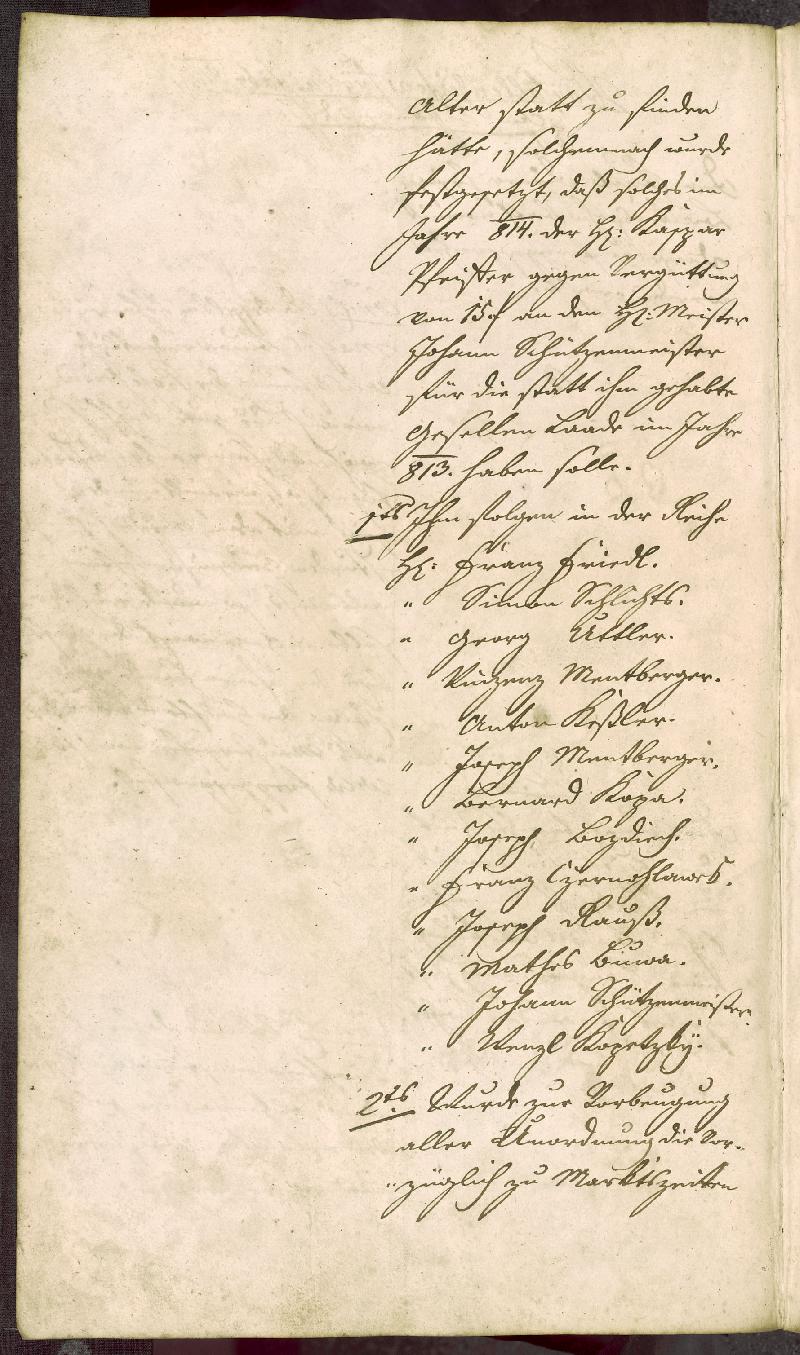 Alter statt zu finden
hätte, solchemnach wurde
festgesetzt, daß solches im
Jahre 814. der H: Kaspar
Pfeiffer gegen Vergüttung
von 15 f an den H: Meister
Johann Schützenmeister
für die statt ihm gehabte
Gesellen Laade im Jahre
813. haben solle.
1tes Ihm folgen in der Reihe
H: Franz Friedl.
" Simon Schlichts.
" Georg Uttler.
" Vinzenz Mentberger.
" Anton Keßler.
" Joseph Mentberger.
" Bernard Kopa.
" Joseph Bozdiech.
" Franz Czernohlawek.
" Joseph Rauß.
" Mathes Buwa.
" Johann Schützenmeister.
" Wenzl Kopetzky.
2tes Wurde zur Vorbeugung
aller Unordnung die Vor-
"züglich zu Marktszeiten